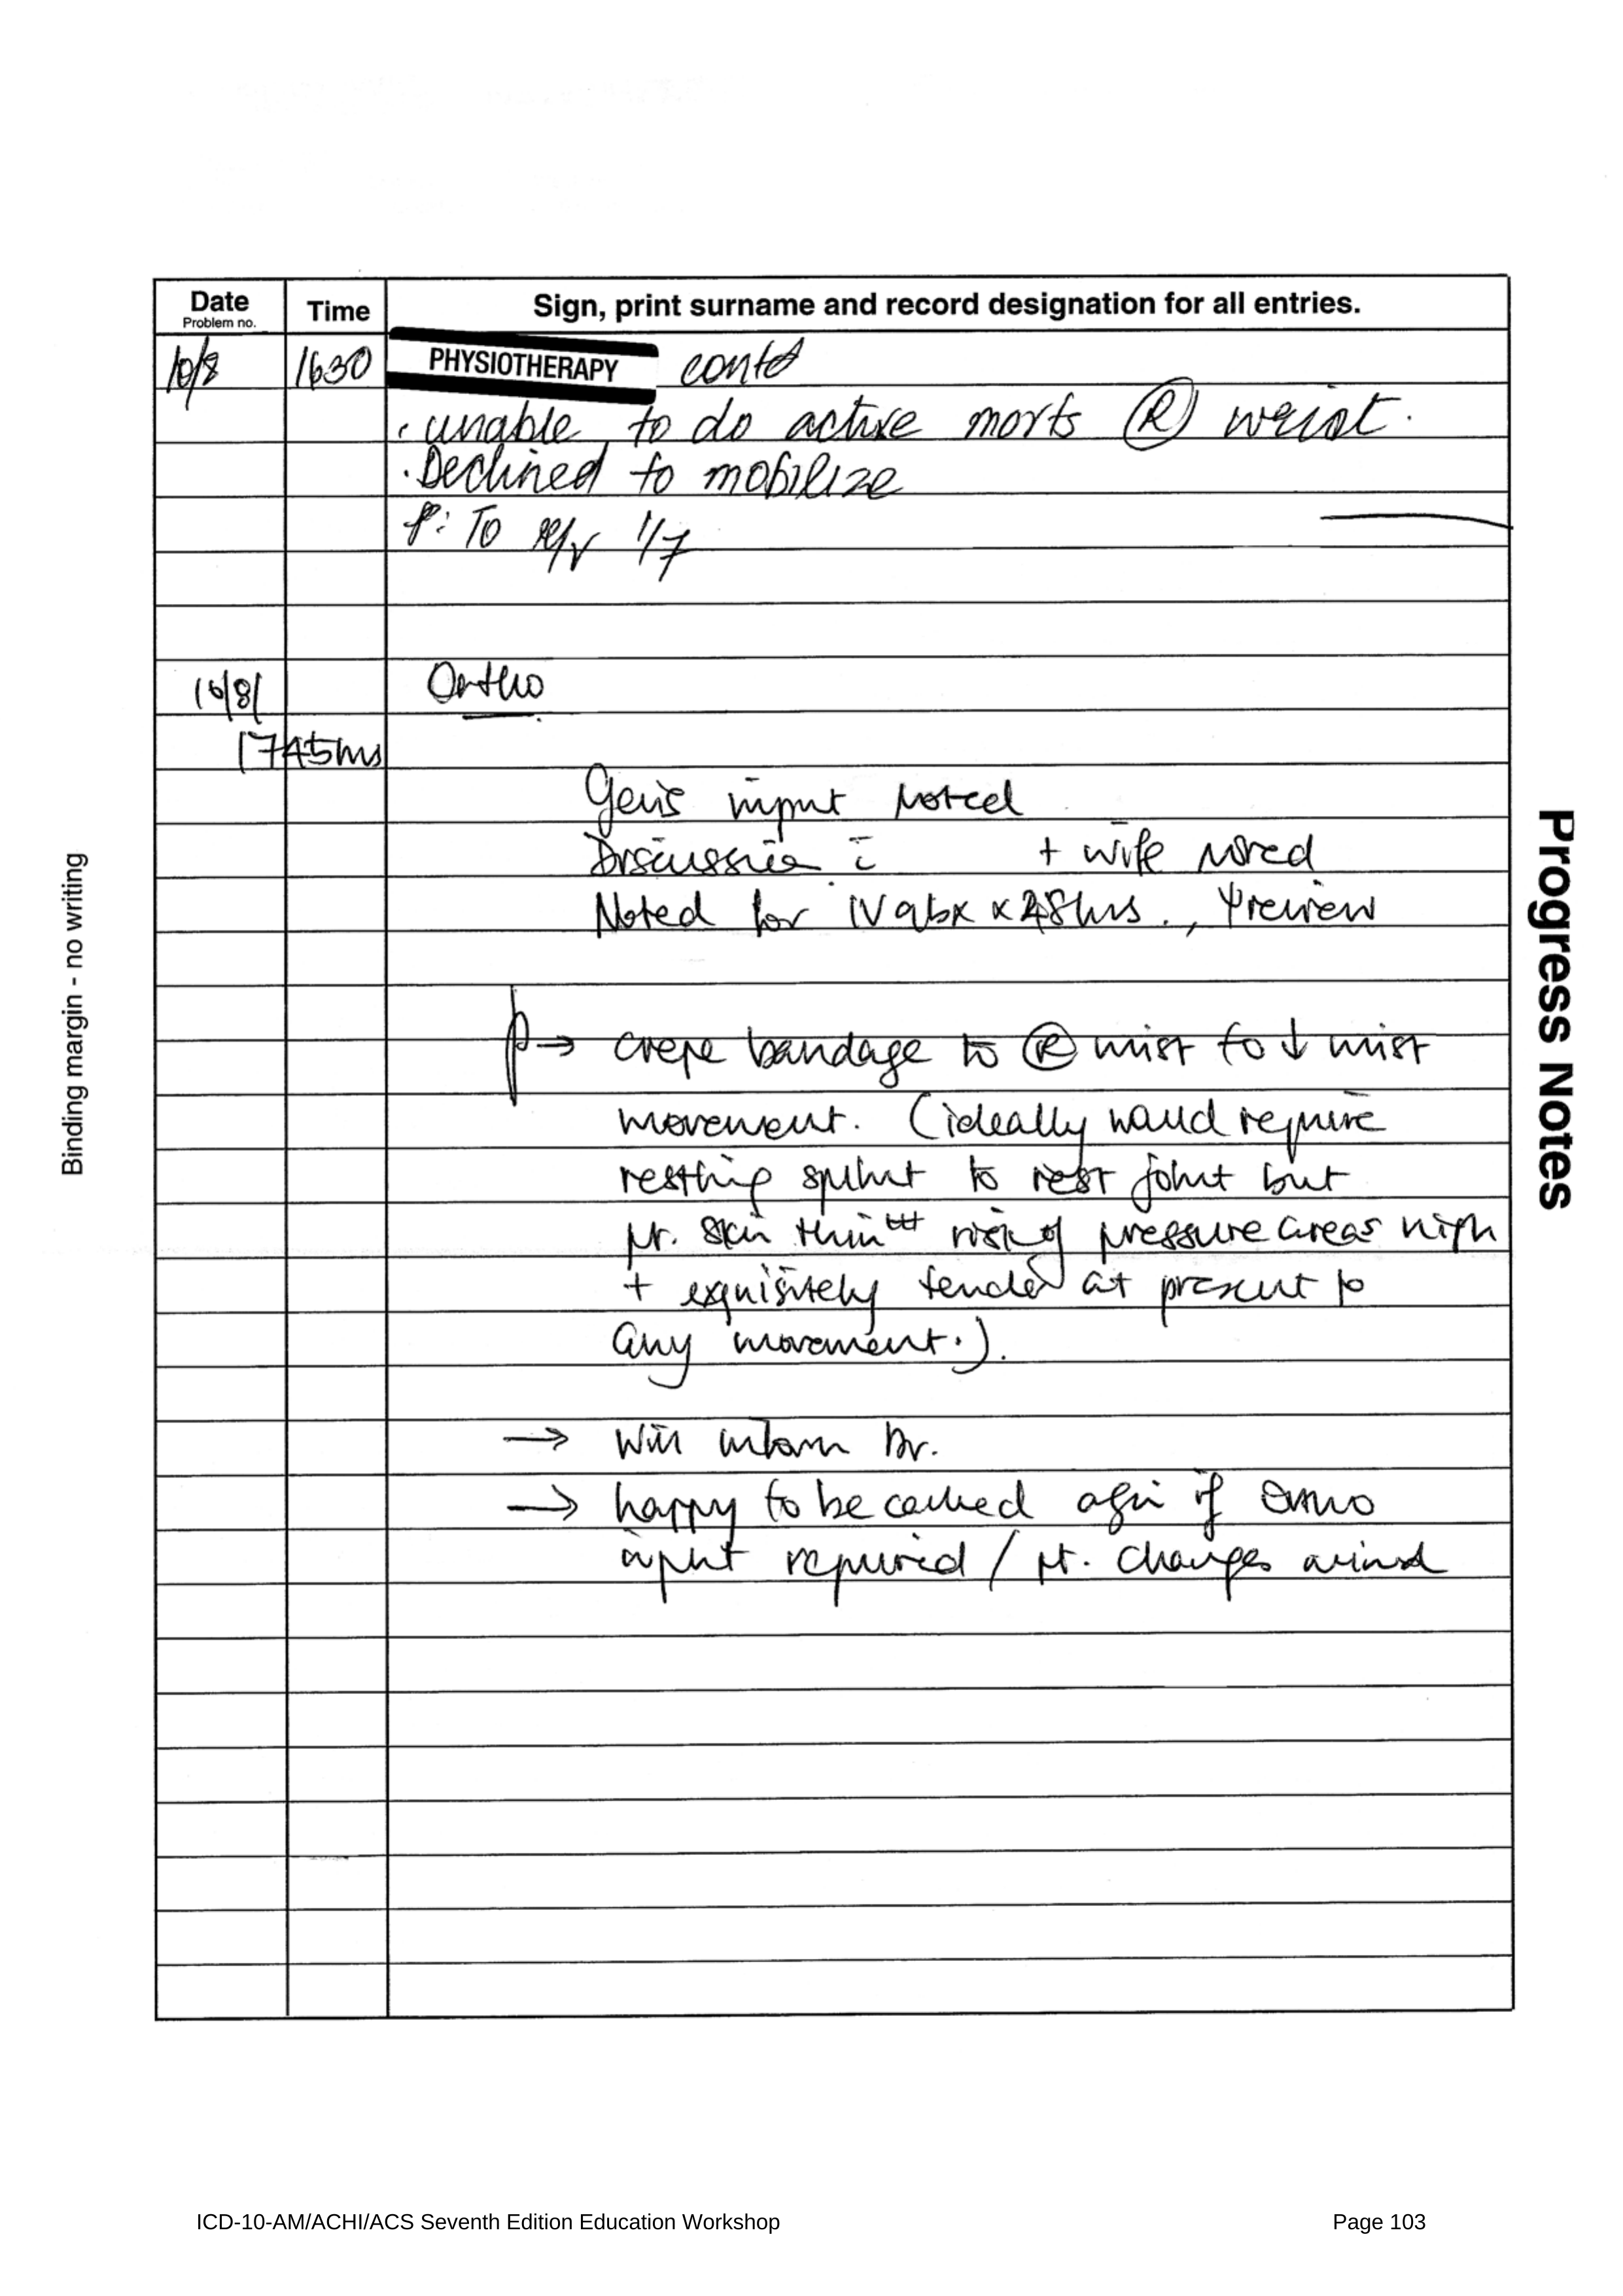 Date
Problem no.
Time
Sign, print surname and record designation for all entries.
10/8 1630 PHYSIOTHERAPY contd
. unable to do active (R) wrist.
. Declined to mobilize
P: To R/V 1/7
10/8/ Ortho
1745hrs
Geris input Noted
Discussion c̄ + wife noted
Noted for IV abx x 48hrs., review
P → crepe bandage to (R) wrist to ↓ wrist
movement. (ideally would require
resting splint to rest joint but
pt. skin thin +++ risk of pressure areas high
+ exquisitely tender at present to
any movement.).
→ Will inform Dr.
→ happy to be called again if ortho
input required / pt. changes mind
Binding margin - no writing
Progress Notes
ICD-10-AM/ACHI/ACS Seventh Edition Education Workshop
Page 103